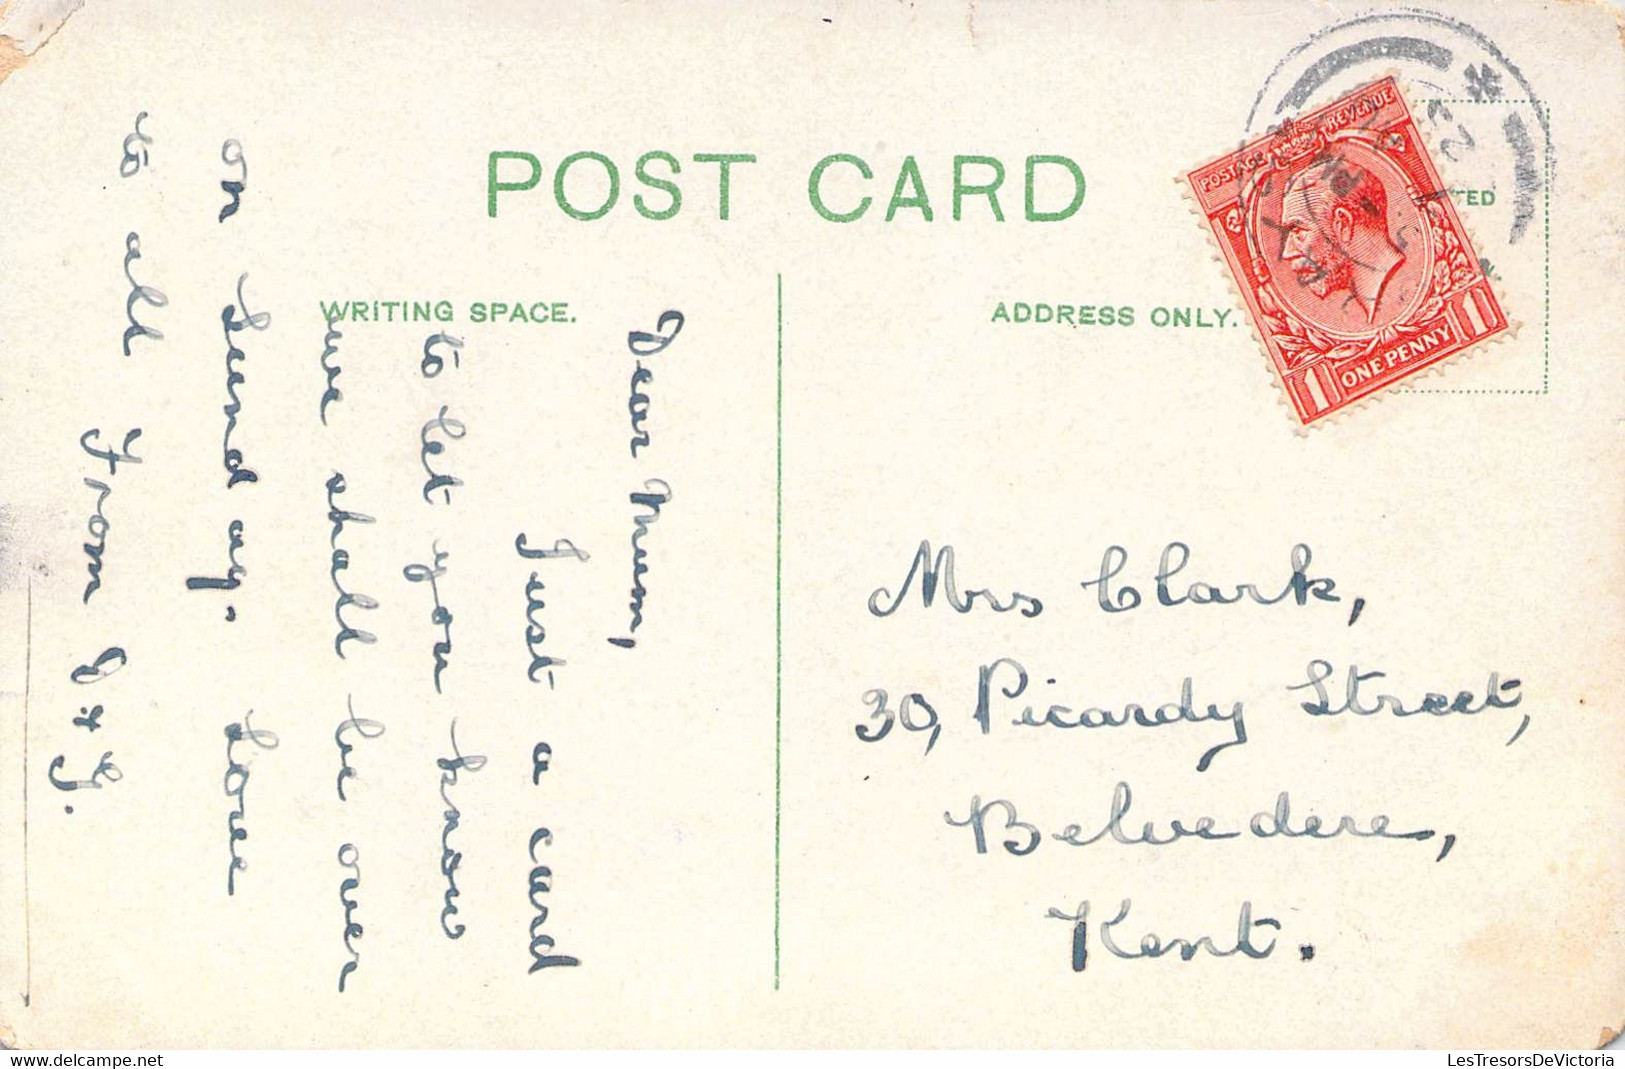 POST CARD
WRITING SPACE.
ADDRESS ONLY.
Dear Mum,
Just a card
to let you know
we shall be over
on Sunday. Love
to all From D & J.
POSTAGE REVENUE
1 ONE PENNY 1
TED
23
PM
Mrs Clark,
30, Picardy Street,
Belvedere,
Kent.
www.delcampe.net
LesTresorsDeVictoria